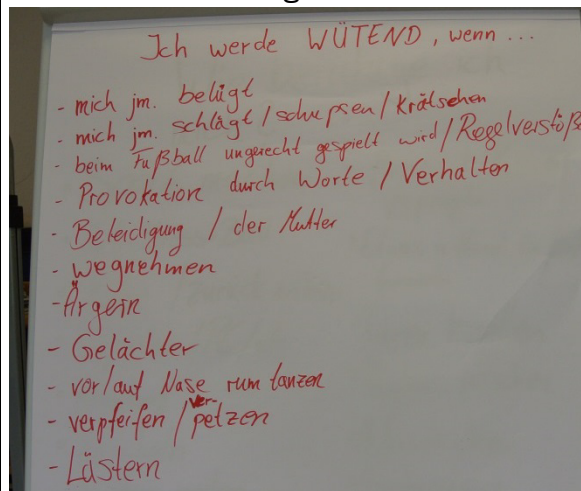 Ich werde WÜTEND, wenn ...
- mich jm. belügt
- mich jm. schlägt / schupsen / Krätschen
- beim Fußball ungerecht gespielt wird / Regelverstöße
- Provokation durch Worte / Verhalten
- Beleidigung / der Mutter
- wegnehmen
- Ärgern
- Gelächter
- vor/auf Nase rum tanzen
- verpfeifen / ver-petzen
- Lästern